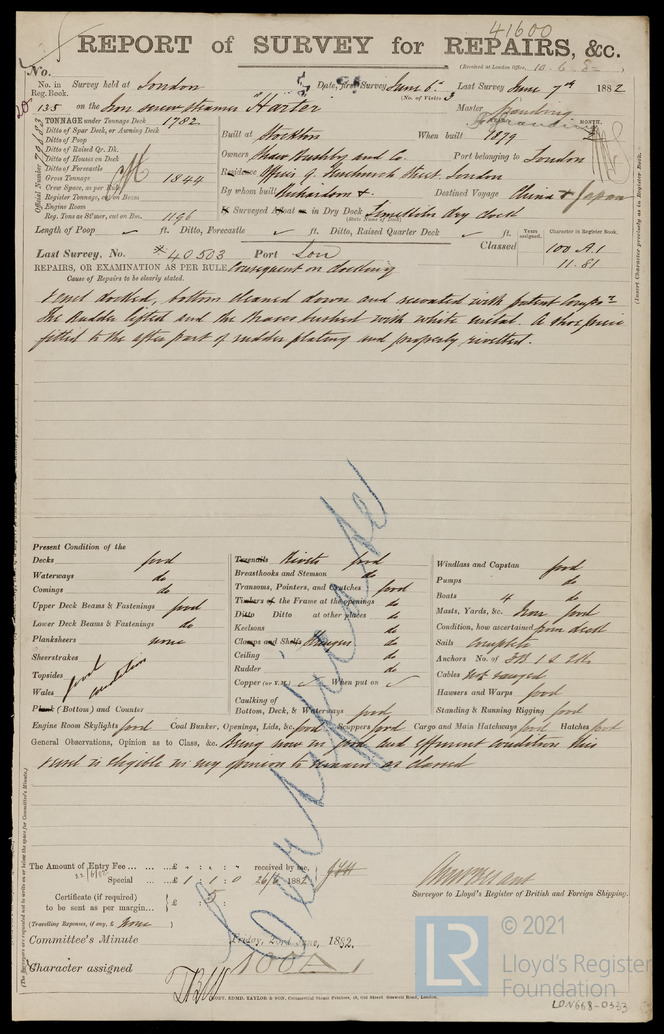 41600
REPORT of SURVEY for REPAIRS, &c.
(Received at London Office, 10-6-82)
No.
No. in Reg. Book. Survey held at London Date, first Survey June 6th Last Survey June 7th 1882
(No. of Visits 3)
135 on the Iron screw steamer "Harter" Master
TONNAGE under Tonnage Deck 1782
Ditto of Spar Deck, or Awning Deck
Ditto of Poop
Ditto of Raised Qr. Dk.
Ditto of Houses on Deck
Ditto of Forecastle
Gross Tonnage 1844
Crew Space, as per Rule
Register Tonnage, cut on Beam
Engine Room
Reg. Tons as Stêmer, cut on Bm. 1196
Official Number
Built at Stockton When built 1879 MONTH.
Owners and Co. Port belonging to London
Residence Offices 9. Fenchurch Street. London
By whom built Richardson & Destined Voyage China & Japan
If Surveyed Afloat or in Dry Dock Limekiln dry dock
(State Name of Dock)
Length of Poop ✓ ft. Ditto, Forecastle ✓ ft. Ditto, Raised Quarter Deck ✓ ft.
Years assigned. Character in Register Book.
Last Survey, No. *40503 Port Lon Classed 100 A1
11-81
REPAIRS, OR EXAMINATION AS PER RULE, Consequent on docking
Cause of Repairs to be clearly stated.
(Insert Character precisely as in Register Book.)
Vessel docked, bottom cleaned down and recoated with patent compn
The Rudder lifted and the Braces bushed with white metal. A shoe piece
fitted to the after part of rudder plating and properly rivetted.
Present Condition of the
Decks good
Waterways do
Comings do
Upper Deck Beams & Fastenings good
Lower Deck Beams & Fastenings do
Planksheers none
Sheerstrakes
Topsides
Wales
good condition
Plank (Bottom) and Counter
Treenails Rivets good
Breasthooks and Stemson do
Transoms, Pointers, and Crutches good
Timbers of the Frame at the openings do
Ditto Ditto at other places do
Keelsons do
Clamps and Shelfs Stringers do
Ceiling do
Rudder do
Copper (or Y.M.) ✓ When put on ✓
Caulking of
Bottom, Deck, & Waterways good
Windlass and Capstan good
Pumps do
Boats 4 do
Masts, Yards, &c. Iron good
Condition, how ascertained from deck
Sails complete
Anchors No. of 3B 1S 2K
Cables Not ranged
Hawsers and Warps good
Standing & Running Rigging good
Engine Room Skylights good Coal Bunker, Openings, Lids, &c. good Scuppers good Cargo and Main Hatchways good Hatches good
General Observations, Opinion as to Class, &c. Being now in good and efficient condition this
Vessel is eligible in my opinion to remain as classed
Certificate
The Amount of Entry Fee ... £ : : received by me,
22/6/82
Special ... £ 1 : 1 : 0 26/6 1882
Certificate (if required)
to be sent as per margin... £ :
(Travelling Expenses, if any, £ None)
Surveyor to Lloyd's Register of British and Foreign Shipping.
Committee's Minute Friday, 23rd June, 1882.
Character assigned 100A1
(The Surveyors are requested not to write on or below the space for Committee's Minute.)
COPT. EDMD. TAYLOR & SON, Commercial Steam Printers, 19, Old Street Goswell Road, London.
LR
© 2021
Lloyd's Register
Foundation
LON668-0333